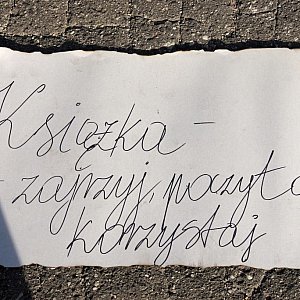 Książka -
- zajrzyj, poczyta
korzystaj